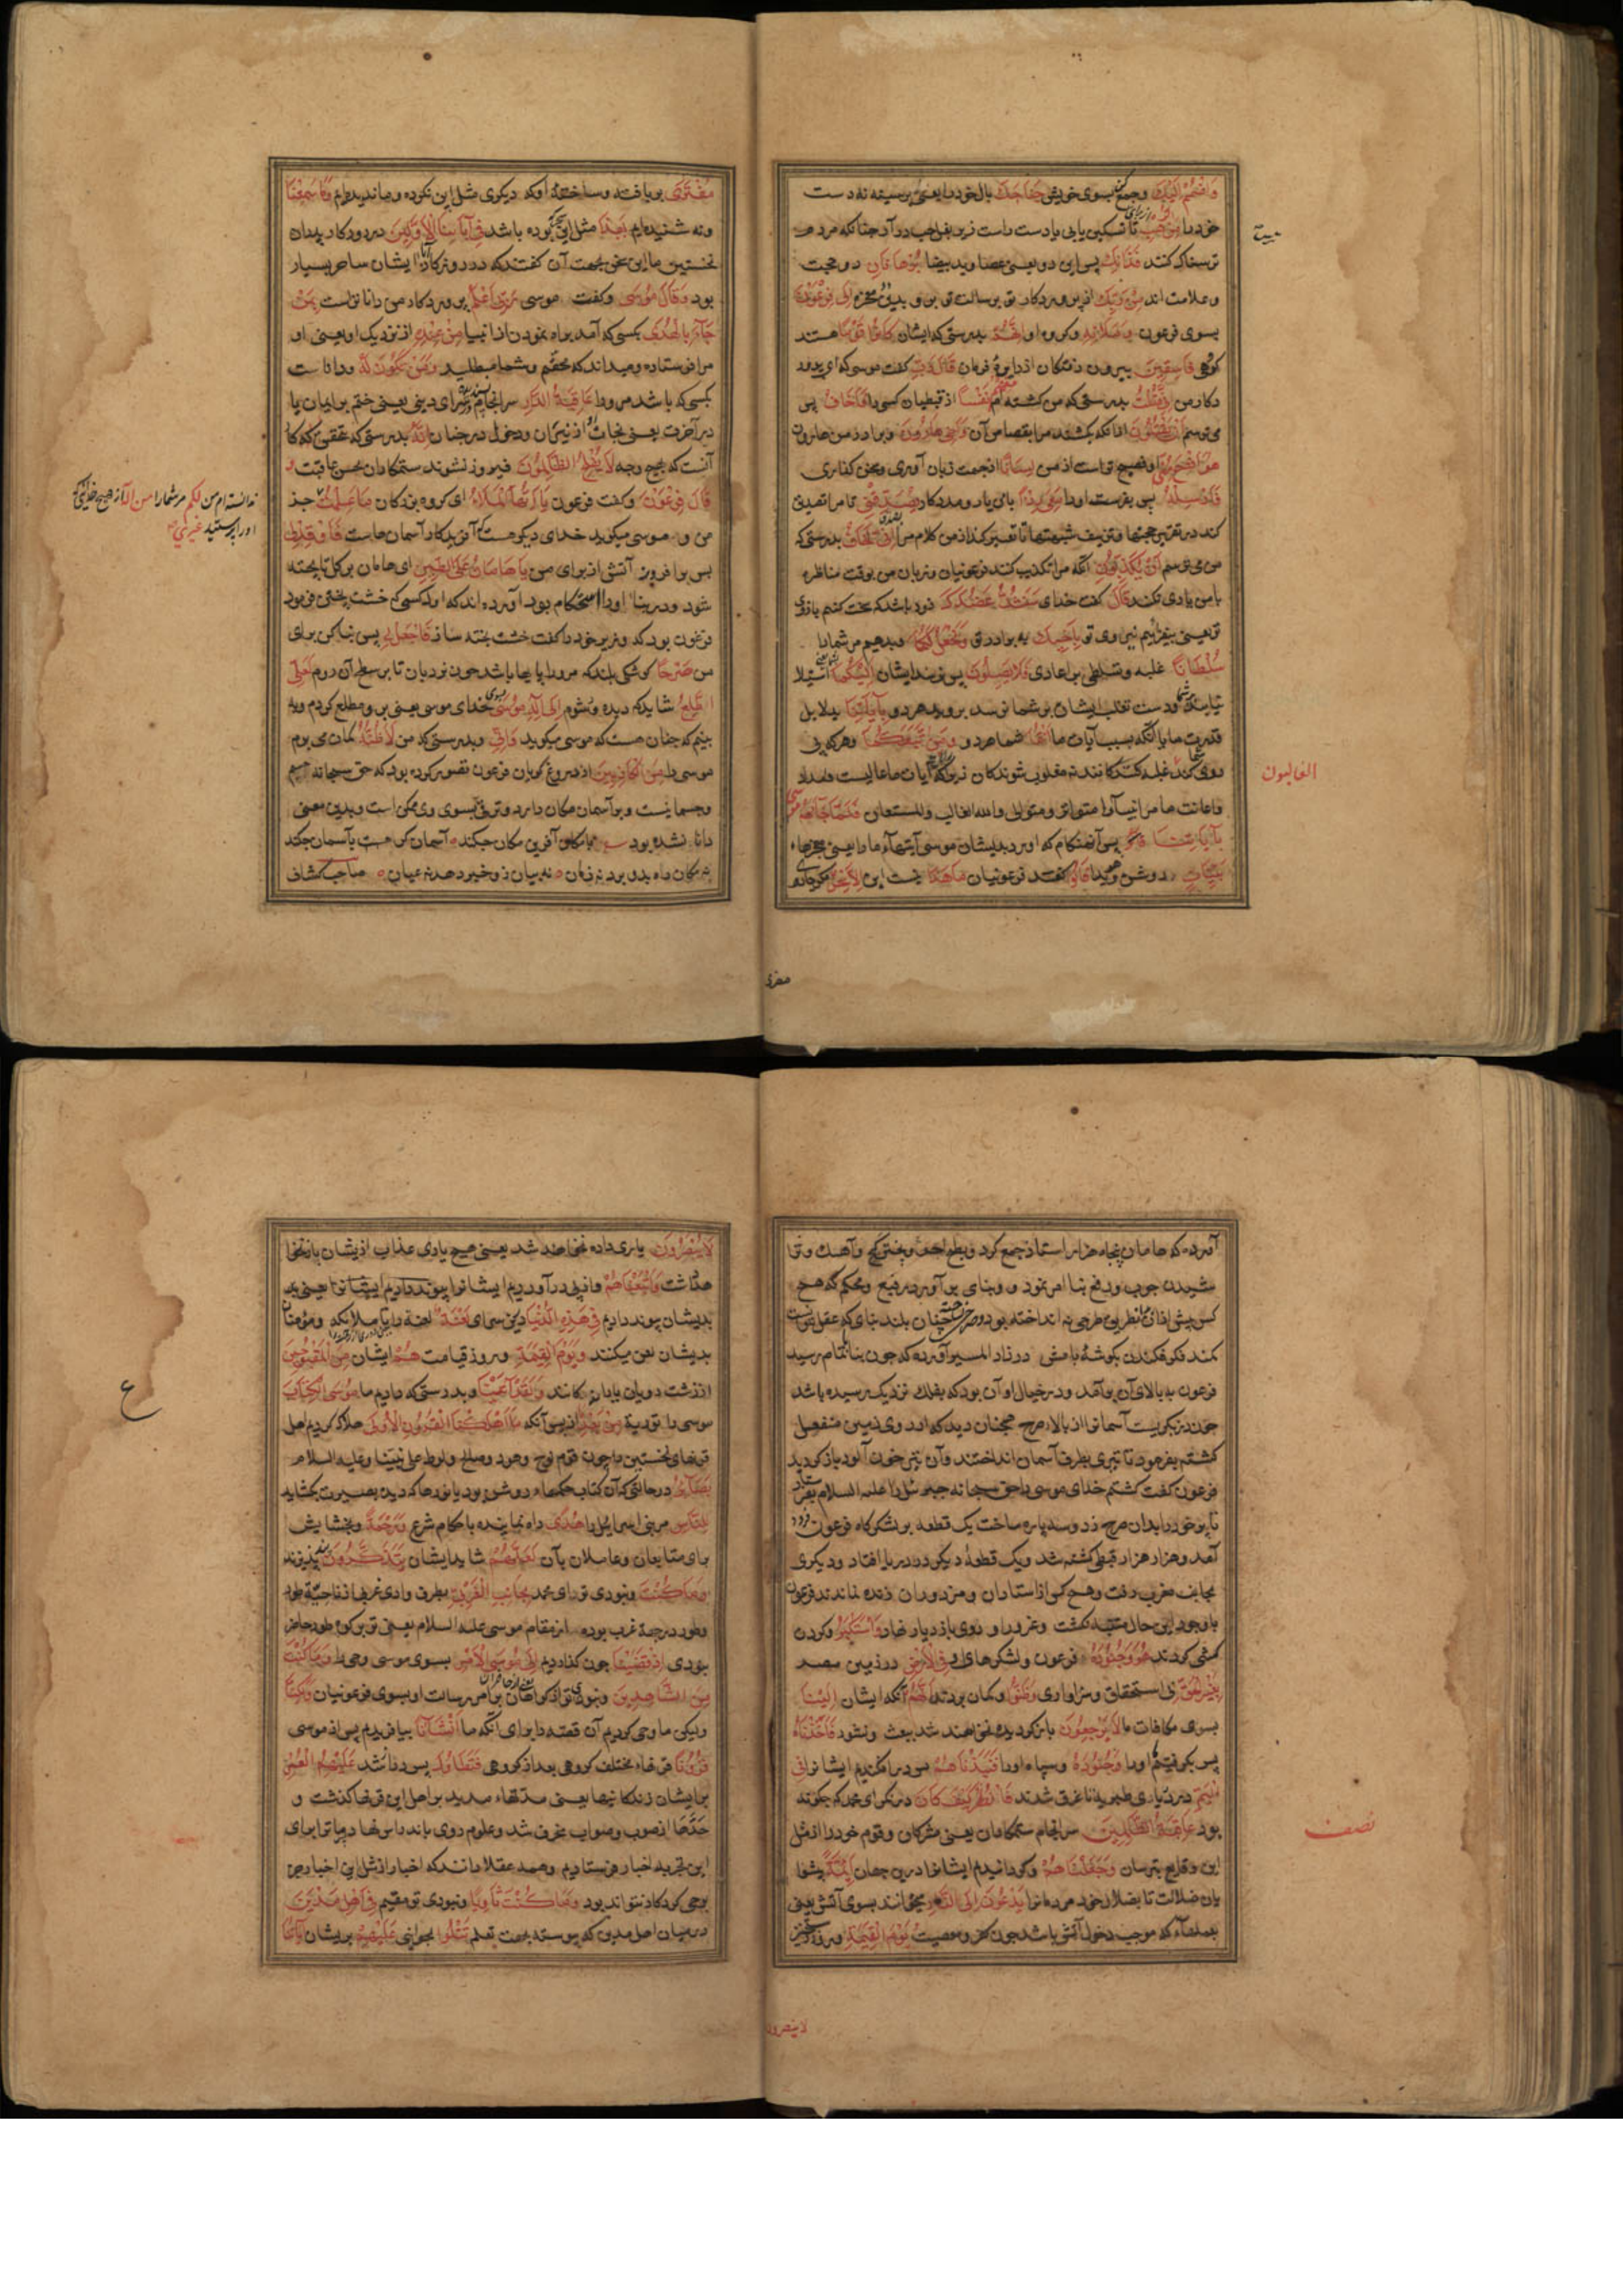 وَاضْمُمْ إِلَيْكَ وجمع کن بسوی خویش جَنَاحَكَ بال خود را یعنی بر سینه نه دست
خود را مِنَ الرَّهْبِ از برای تا تسکین یابی یا دست راست زیر بغل چپ درآر چنانکه مردم
ترسناک کنند فَذَانِكَ پس این دو یعنی عصا و ید بیضا بُرْهَانَانِ دو حجت
و علامت اند مِنْ رَبِّكَ از پروردگار تو برسالت تو إِلَى فِرْعَوْنَ
بسوی فرعون وَمَلَائِهِ و گروه او إِنَّهُمْ بدرستی که ایشان كَانُوا قَوْمًا هستند
گروهی فَاسِقِينَ بیرون رفتگان از دایرهٔ فرمان قَالَ رَبِّ گفت موسی که ای پرورد
گار من إِنِّي قَتَلْتُ بدرستی که من کشته ام مِنْهُمْ نَفْسًا از قبطیان کسی را فَأَخَافُ پس
می ترسم أَنْ يَقْتُلُونِ از آنکه بکشند مرا بقصاص آن وَأَخِي هَارُونُ و برادر من هارون
هُوَ أَفْصَحُ مِنِّي او فصیح تر است از من لِسَانًا از جهت زبان آوری و سخن گذاری
فَأَرْسِلْهُ پس بفرست او را مَعِيَ رِدْءًا با من یار و مددکار يُصَدِّقُنِي تا مرا تصدیق
کند در تقریر حجتها و تزییف شبهتها تا تفسیر کند از من کلام مرا إِنِّي أَخَافُ بدرستی که
من می ترسم أَنْ يُكَذِّبُونِ آنکه مرا تکذیب کنند فرعونیان و زبان من بوقت مناظره
با من یاری نکند قَالَ گفت خدای سَنَشُدُّ عَضُدَكَ زود باشد که سخت کنیم بازوی
تو یعنی بیفزاییم نیروی تو بِأَخِيكَ به برادر تو وَنَجْعَلُ لَكُمَا و بدهیم مر شما را
سُلْطَانًا غلبه و تسلطی بر اعادی فَلَا يَصِلُونَ پس نرسند ایشان إِلَيْكُمَا بشما یعنی استیلا
نیابند و دست تغلب ایشان بر شما نرسد بروید هر دو بِآيَاتِنَا بدلایل
قدرت ما یا آنکه بسبب آیات ما أَنْتُمَا شما هر دو وَمَنِ اتَّبَعَكُمَا و هر که پی
روی کند شما را غلبه کنندگانند نه مغلوب شوندگان زیرا که رایات ما عالیست و امداد
و اعانت ما مر انبیا را متواتر و متوالی والله الغالب والمستعان فَلَمَّا جَاءَهُمْ مُوسَى
بِآيَاتِنَا پس آن هنگام که آورد بدیشان موسی آیتهای ما را یعنی معجزهاء
بَيِّنَاتٍ روشن و هویدا قَالُوا گفتند فرعونیان مَا هَذَا نیست این إِلَّا سِحْرٌ مگر جادوی
بیت
الغالبون
مفتری
مُفْتَرًى بربافته و ساختهٔ او که دیگری مثل این نکرده و مانند ندیده‌ام وَمَا سَمِعْنَا
و نه شنیده‌ایم بِهَذَا مثل این که بوده باشد فِي آبَائِنَا الْأَوَّلِينَ در روزگار پدران
نخستین ما این سخن بجهت آن گفتند که در روزگار آبا ایشان ساحر بسیار
بود وَقَالَ مُوسَى و گفت موسی رَبِّي أَعْلَمُ پروردگار من داناتر است بِمَنْ
جَاءَ بِالْهُدَى بکسی که آمد براه نمودن از انبیا مِنْ عِنْدِهِ از نزدیک او یعنی او
مرا فرستاده و میداند که محقم و شما مبطلید وَمَنْ تَكُونُ لَهُ و داناست
بکسی که باشد مر او را عَاقِبَةُ الدَّارِ سرانجام سرای دینی یعنی ختم بر ایمان یا
در آخرت یعنی نجات از نیران و دخول در جنان إِنَّهُ بدرستی که تحقیق که کار
آنست که بهیچ وجه لَا يُفْلِحُ الظَّالِمُونَ فیروز نشوند ستمکاران بحسن عاقبت وَ
قَالَ فِرْعَوْنُ و گفت فرعون يَا أَيُّهَا الْمَلَأُ ای گروه بزرگان مَا عَلِمْتُ جز
من و موسی میگوید خدای دیگر هست که آفریدگار آسمان هاست فَأَوْقِدْ لِي
پس برافروز آتش از برای من يَا هَامَانُ عَلَى الطِّينِ ای هامان بر گل تا پخته
شود و در بنا او را استحکام بود آورده اند که اول کسی که خشت پختن فرمود
فرعون بود که وزیر خود را گفت خشت پخته ساز فَاجْعَلْ لِي پس بنا کن برای
من صَرْحًا کوشکی بلند که مر او را پایها باشد چون نردبان تا بر سطح آن روم لَعَلِّي
أَطَّلِعُ شاید که دیده ور شوم إِلَى إِلَهِ مُوسَى بسوی خدای موسی یعنی برو مطلع گردم و به
بینم که چنان هست که موسی میگوید وَإِنِّي و بدرستی که من لَأَظُنُّهُ گمان می برم
موسی را مِنَ الْكَاذِبِينَ از دروغ گویان فرعون تصور کرده بود که حق سبحانه جسم
و جسمانیست و بر آسمان مکان دارد و ترقی بسوی وی ممکن است و بدین معنی
دانا نشده بود با مکان آفرین مکان چکند ٥ آسمان گر بآسمان چکند
نه مکان راه بدو برد نه زمان ٥ نه بیان زو خبر دهد نه عیان ٥ صاحب کشاف
ندانسته ام من لَكُمْ مر شما را مِنْ إِلَهٍ از هیچ خدای که
او را پرستید غَيْرِي
آورده که هامان پنجاه هزار استاد جمع کرد و بطبخ آجر و پختن گچ و آهک و ترا
شیدن چوب و رفع بنا امر نمود و بنای برآورد رفیع و محکم که هیچ
کس پیش از آن بر آن نظر طرحی نه انداخته بود صرحی ساخت چنان بلند بنای که عقل نتوانست
کمند فکر فکندن بگوشهٔ بامش در زاد المسیر آورده که چون بنا تمام رسید
فرعون به بالای آن برآمد و در خیال او آن بود که بفلک نزدیک رسیده باشد
چون در نگریست آسمان را از بالای صرح همچنان دید که از روی زمین منفعل
گشته بفرمود تا تیری بطرف آسمان انداختند و آن تیر خون آلود بازگردید
فرعون گفت کشتم خدای موسی را حق سبحانه جبرئیل را علیه السلام بفرستاد
تا پر خود را بدان صرح زد و سه پاره ساخت یک قطعه بر لشکرگاه فرعون فرود
آمد و هزار هزار قبطی کشته شد و یک قطعهٔ دیگر در دریا افتاد و دیگری
بجانب مغرب رفت و هیچ کس از استادان و مزدوران زنده نماندند فرعون
باوجود این حال متنبه نگشت و غرور او روی بازدیاد نهاد وَاسْتَكْبَرَ و گردن
کشی کردند هُوَ وَجُنُودُهُ فرعون و لشکرهای او فِي الْأَرْضِ در زمین مصر
بِغَيْرِ الْحَقِّ بی استحقاق و سزاواری وَظَنُّوا و گمان بردند أَنَّهُمْ آنکه ایشان إِلَيْنَا
بسوی مکافات ما لَا يُرْجَعُونَ بازگردیده نخواهند شد ببعث و نشور فَأَخَذْنَاهُ
پس بگرفتیم او را وَجُنُودَهُ و سپاه او را فَنَبَذْنَاهُمْ پس درافکندیم ایشان را فِي
الْيَمِّ در دریای تا غرق شدند فَانْظُرْ كَيْفَ كَانَ درنگر ای محمد که چگونه
بود عَاقِبَةُ الظَّالِمِينَ سرانجام ستمکاران یعنی مشرکان و قوم خود را از مثل
این وقایع بترسان وَجَعَلْنَاهُمْ و گردانیدیم ایشان را درین جهان أَئِمَّةً پیشوا
یان ضلالت تا بضلال خود مردمان را يَدْعُونَ إِلَى النَّارِ میخوانند بسوی آتش یعنی
بعملهاء که موجب دخول آتش باشد چون کفر و معصیت وَيَوْمَ الْقِيَامَةِ و روز رستخیز
نصف
لا ینصرون
لَا يُنْصَرُونَ یاری داده نخواهند شد یعنی هیچ یاری عذاب ازیشان باز نخوا
هد داشت وَأَتْبَعْنَاهُمْ و از پی درآوردیم ایشان را و پیوند دادیم ایشان را یعنی
بدیشان پیوند دادیم فِي هَذِهِ الدُّنْيَا درین سرای لَعْنَةً لعنت را یا ملائکه و مؤمنان
بدیشان لعن میکنند وَيَوْمَ الْقِيَامَةِ و روز قیامت هُمْ ایشان مِنَ الْمَقْبُوحِينَ
از زشت رویان یا رانده کانند وَلَقَدْ آتَيْنَا و بدرستی که دادیم ما مُوسَى الْكِتَابَ
موسی را توریة مِنْ بَعْدِ از پس آنکه مَا أَهْلَكْنَا الْقُرُونَ الْأُولَى هلاک کردیم اهل
قرنهای نخستین را چون قوم نوح و هود و صالح و لوط علی نبینا و علیه السلام
بَصَائِرَ در حالتی که آن کتاب حکمهاء روشن بود یا نورها که دیده بصیرت بگشاید
لِلنَّاسِ مر بنی اسرائیل را هُدًى و راه نماینده باحکام شرع وَرَحْمَةً و بخشایش
برای متابعان و عاملان بآن لَعَلَّهُمْ شاید ایشان يَتَذَكَّرُونَ پند پذیرند
وَمَا كُنْتَ و نبودی تو ای محمد بِجَانِبِ الْغَرْبِيِّ بطرف وادی غربی از ناحیهٔ طور
و طور در جهة غرب بوده از مقام موسی علیه السلام یعنی تو بر کوه طور حاضر
نبودی إِذْ قَضَيْنَا چون گذاردیم إِلَى مُوسَى الْأَمْرَ بسوی موسی وحی را وَمَا كُنْتَ
مِنَ الشَّاهِدِينَ و نبودی تو از گواهان یعنی از حاضران بر امر رسالت او بسوی فرعونیان وَلَكِنَّا
ولیکن ما وحی کردیم آن قصه را برای آنکه ما أَنْشَأْنَا بیافریدیم پس از موسی
قُرُونًا قرنهاء مختلف گروهی بعد از گروهی فَتَطَاوَلَ پس دراز شد عَلَيْهِمُ الْعُمُرُ
بر ایشان زندگانیها یعنی مدتهاء مدید بر اهل این قرنها گذشت و
از صوب و صواب منحرف شد و علوم روی باندراس نهاد ترا برای
این تجرید اخبار فرستادیم و همه عقلا دانند که اخبار از مثل این اخبار جز
بوحی کردگار نتواند بود وَمَا كُنْتَ ثَاوِيًا و نبودی تو مقیم فِي أَهْلِ مَدْيَنَ
در میان اهل مدین که پیوسته بجهت تعلم تَتْلُو بخوانی عَلَيْهِمْ بریشان آيَاتِنَا
ع